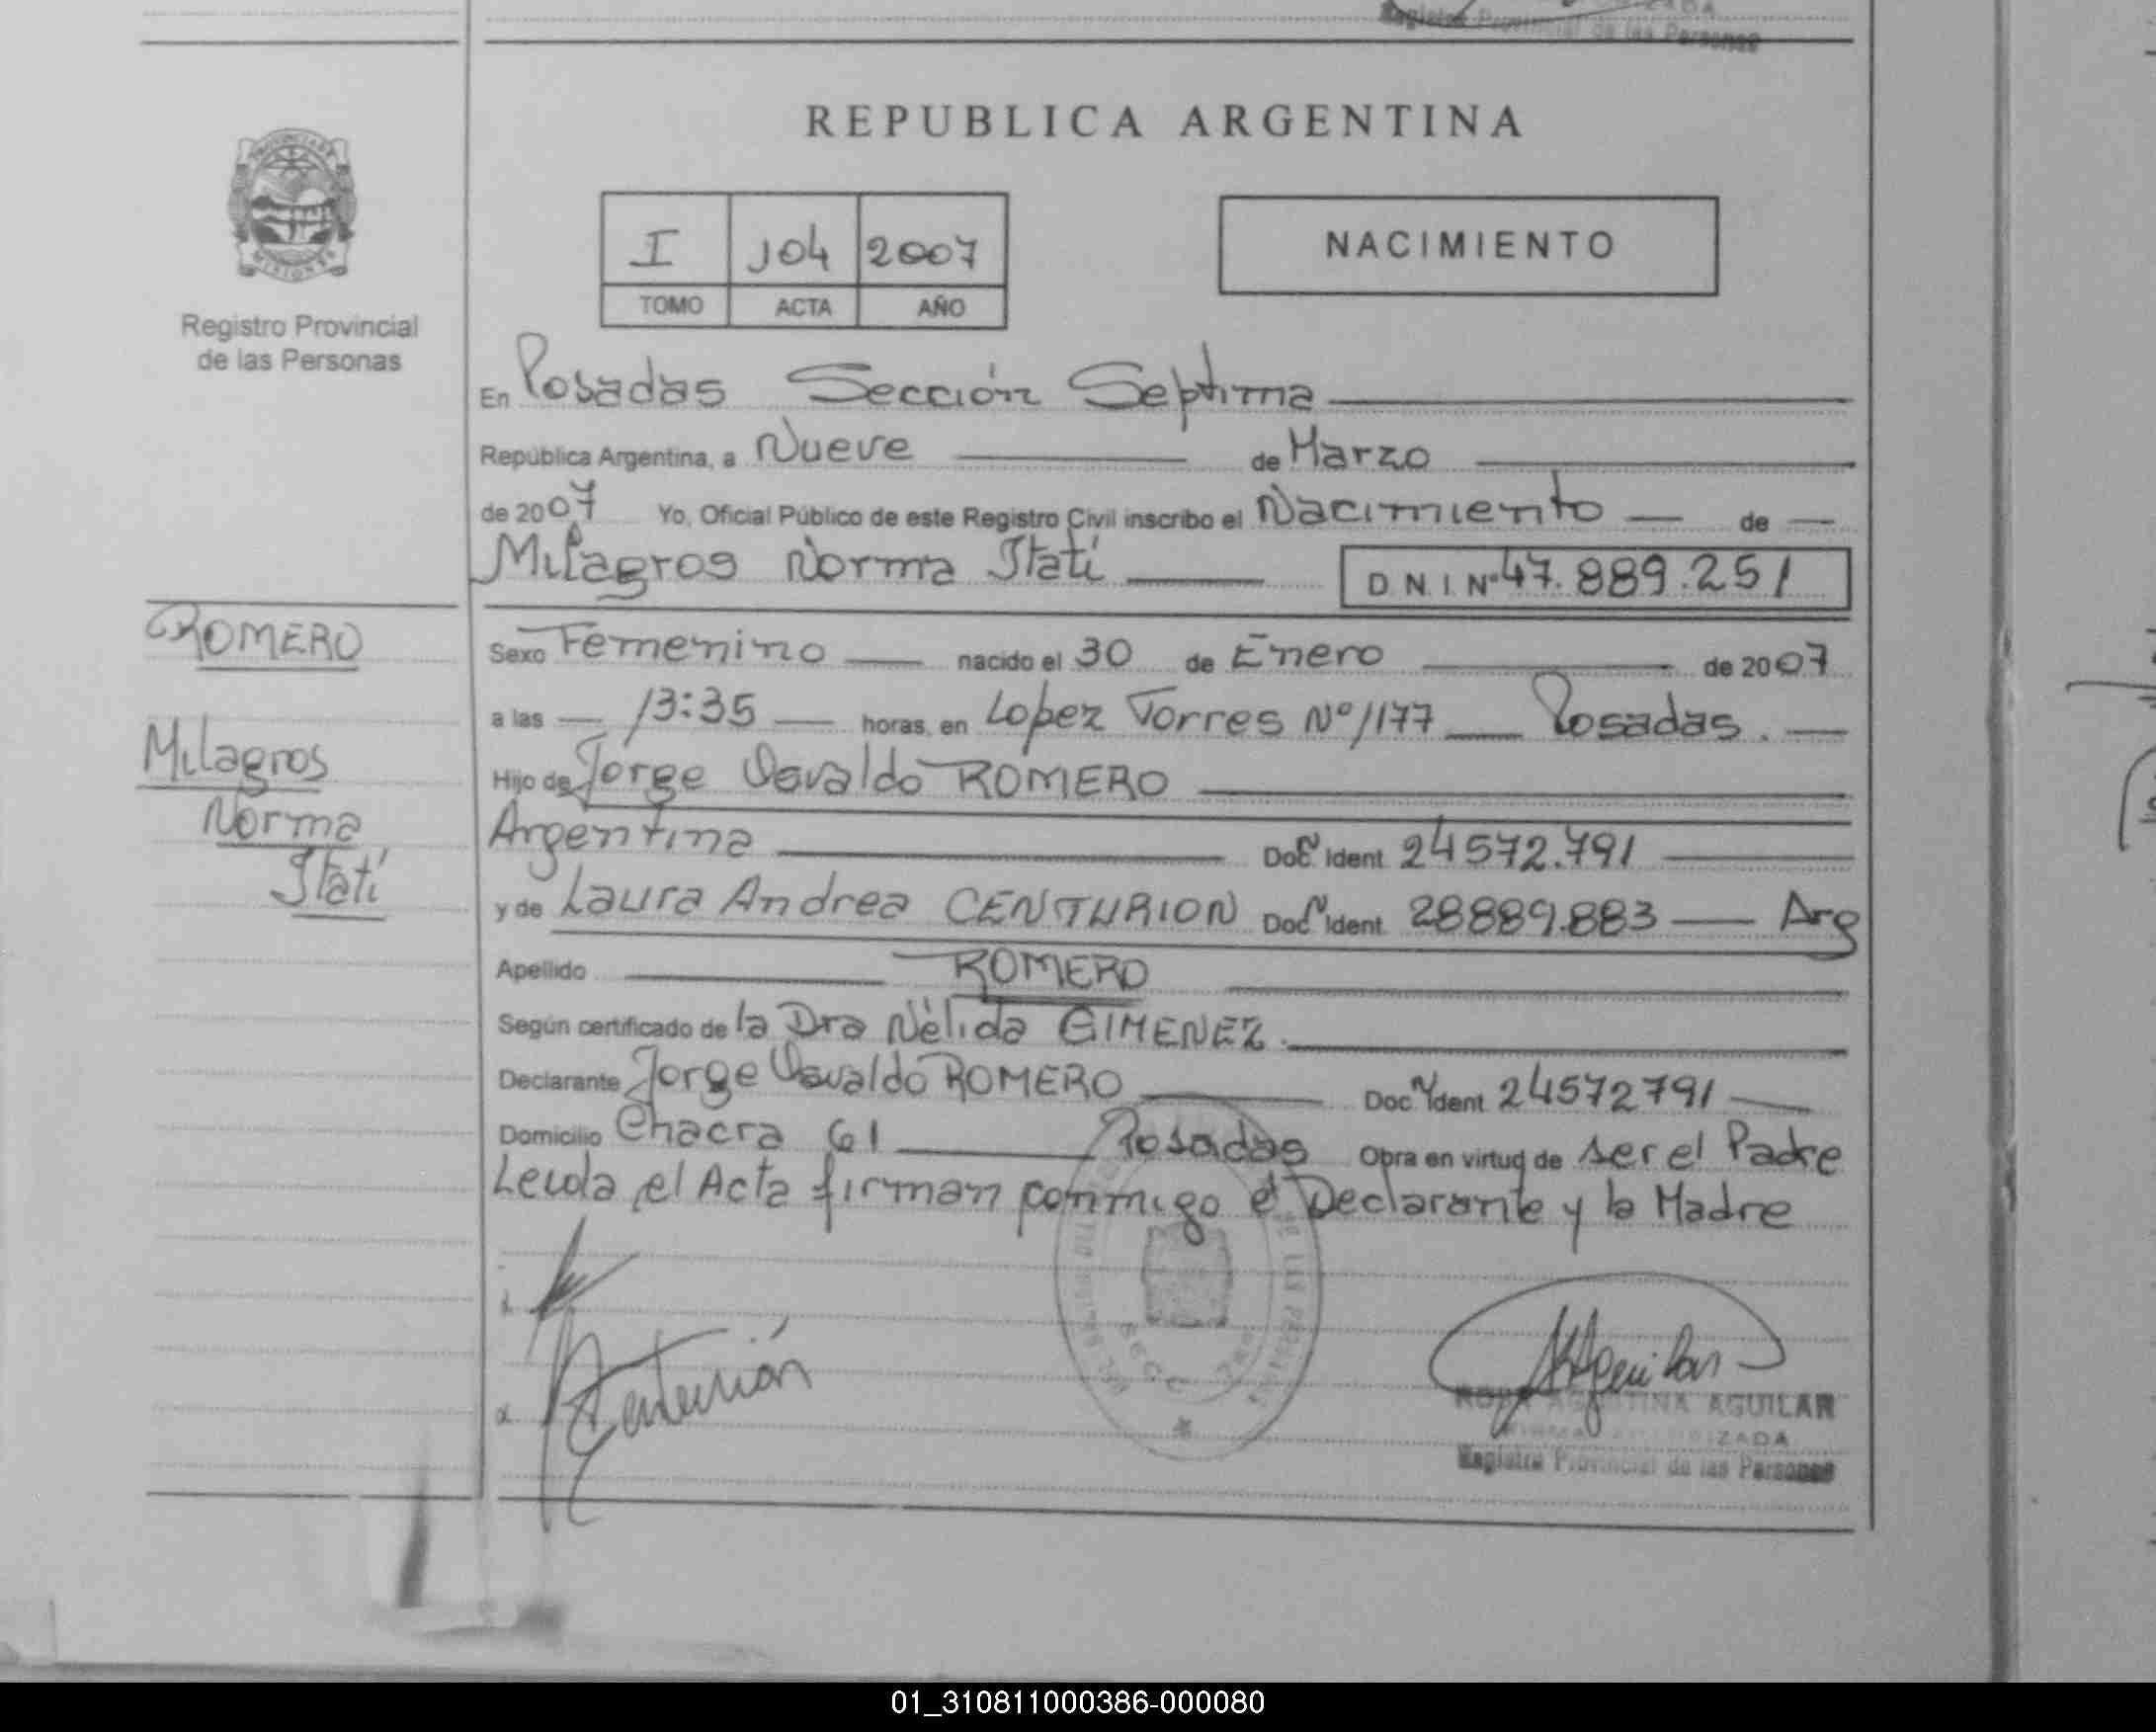 Registro Provincial de las Personas
REPUBLICA ARGENTINA
PROVINCIA DE
MISIONES
Registro Provincial
de las Personas
I 104 2007
TOMO ACTA AÑO
NACIMIENTO
En Posadas Sección Septima
República Argentina, a Nueve de Marzo
de 2007 Yo, Oficial Público de este Registro Civil inscribo el Nacimiento de
Milagros Norma Itatí D.N.I. Nº 47.889.251
ROMERO
Milagros
Norma
Itatí
Sexo Femenino nacido el 30 de Enero de 2007
a las 13:35 horas, en Lopez Torres Nº 1177 Posadas.
Hijo de Jorge Osvaldo ROMERO
Argentina Doc. Ident. 24572.791
y de Laura Andrea CENTURION Doc. Ident. 28889.883 Arg
Apellido ROMERO
Según certificado de la Dra Nélida GIMENEZ.
Declarante Jorge Osvaldo ROMERO Doc. Ident 24572791
Domicilio Chacra 61 Posadas Obra en virtud de ser el Padre
Leida el Acta firman conmigo el Declarante y la Madre
Centurión
SECC
Aguilar
ROSA AGUSTINA AGUILAR
FIRMA AUTORIZADA
Registro Provincial de las Personas
01_310811000386-000080